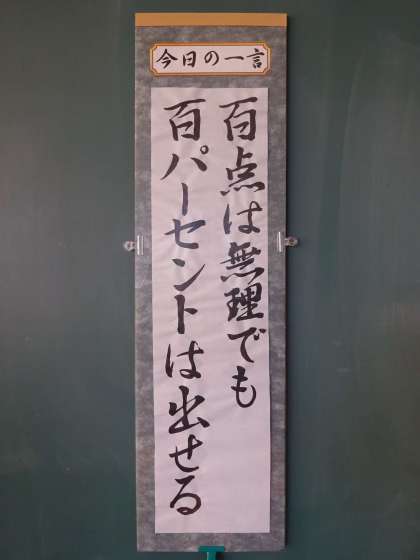 今日の一言
百点は無理でも
百パーセントは出せる